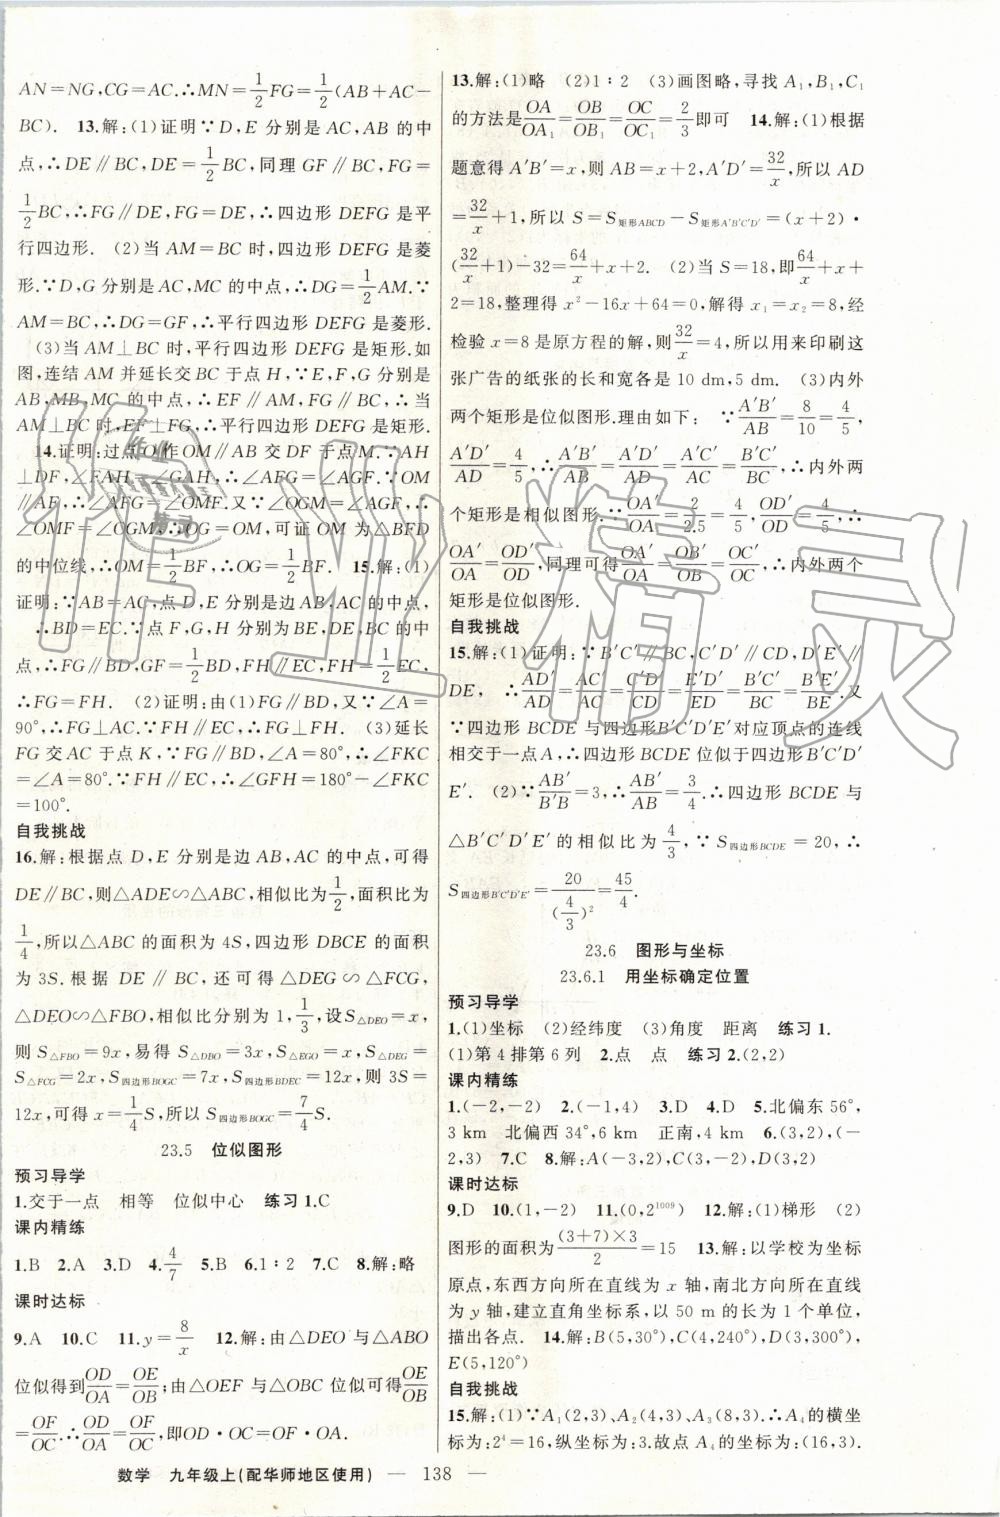 AN=NG,CG=AC.∴MN=1/2FG=1/2(AB+AC-
BC). 13.解:(1)证明∵D,E 分别是 AC,AB 的中
点,∴DE∥BC,DE=1/2BC,同理 GF∥BC,FG=
1/2BC,∴FG∥DE,FG=DE,∴四边形 DEFG 是平
行四边形. (2)当 AM=BC 时,四边形 DEFG 是菱
形.∵D,G 分别是 AC,MC 的中点,∴DG=1/2AM.∵
AM=BC,∴DG=GF,∴平行四边形 DEFG 是菱形.
(3)当 AM⊥BC 时,平行四边形 DEFG 是矩形.如
图,连结 AM 并延长交 BC 于点 H,∵E,F,G 分别是
AB,MB,MC 的中点,∴EF∥AM,FG∥BC,∴当
AM⊥BC 时,EF⊥FG,∴平行四边形 DEFG 是矩形.
14.证明:过点 O 作 OM∥AB 交 DF 于点 M.∵AH
⊥DF,∠FAH=∠GAH,∴∠AFG=∠AGF.∵OM
∥AF,∴∠AFG=∠OMF.又∵∠OGM=∠AGF,∴
∠OMF=∠OGM,∴OG=OM,可证 OM 为△BFD
的中位线,∴OM=1/2BF,∴OG=1/2BF. 15.解:(1)
证明:∵AB=AC,点 D,E 分别是边 AB,AC 的中点,
∴BD=EC.∵点 F,G,H 分别为 BE,DE,BC 的中
点,∴FG∥BD,GF=1/2BD,FH∥EC,FH=1/2EC,
∴FG=FH. (2)证明:由(1)FG∥BD,又∵∠A=
90°,∴FG⊥AC.∵FH∥EC,∴FG⊥FH. (3)延长
FG 交 AC 于点 K,∵FG∥BD,∠A=80°,∴∠FKC
=∠A=80°.∵FH∥EC,∴∠GFH=180°-∠FKC
=100°.
自我挑战
16.解:根据点 D,E 分别是边 AB,AC 的中点,可得
DE∥BC,则△ADE∽△ABC,相似比为1/2,面积比为
1/4,所以△ABC 的面积为 4S,四边形 DBCE 的面积
为 3S.根据 DE∥BC,还可得△DEG∽△FCG,
△DEO∽△FBO,相似比分别为 1,1/3,设S△DEO=x,
则 S△FBO=9x,易得 S△DBO=3x,S△EGO=x,S△DEG=
S△FCG=2x,S四边形BOGC=7x,S四边形BDEC=12x,则 3S=
12x,可得 x=1/4S,所以 S四边形BOGC=7/4S.
23.5 位似图形
预习导学
1.交于一点 相等 位似中心 练习 1.C
课内精练
1.B 2.A 3.D 4.4/7 5.B 6.1∶2 7.C 8.解:略
课时达标
9.A 10.C 11.y=8/x 12.解:由△DEO 与△ABO
位似得到OD/OA=OE/OB;由△OEF 与△OBC 位似可得OE/OB
=OF/OC.∴OD/OA=OF/OC,即OD·OC=OF·OA.
13.解:(1)略 (2)1∶2 (3)画图略,寻找 A₁,B₁,C₁
的方法是OA/OA₁=OB/OB₁=OC/OC₁=2/3即可 14.解:(1)根据
题意得 A′B′=x,则 AB=x+2,A′D′=32/x,所以 AD
=32/x+1,所以 S=S矩形ABCD-S矩形A′B′C′D′=(x+2)·
(32/x+1)-32=64/x+x+2. (2)当 S=18,即64/x+x+
2=18,整理得 x²-16x+64=0,解得 x₁=x₂=8,经
检验 x=8 是原方程的解,则32/x=4,所以用来印刷这
张广告的纸张的长和宽各是 10 dm,5 dm. (3)内外
两个矩形是位似图形.理由如下: ∵A′B′/AB=8/10=4/5,
A′D′/AD=4/5,∴A′B′/AB=A′D′/AD=A′C′/AC=B′C′/BC,∴内外两
个矩形是相似图形.∵OA′/OA=2/2.5=4/5,OD′/OD=4/5,∴
OA′/OA=OD′/OD,同理可得OA′/OA=OB′/OB=OC′/OC,∴内外两个
矩形是位似图形.
自我挑战
15.解:(1)证明:∵B′C′∥BC,C′D′∥CD,D′E′∥
DE, ∴AD′/AD=AC′/AC=C′D′/CD=E′D′/ED=B′C′/BC=B′E′/BE.又
∵四边形 BCDE 与四边形B′C′D′E′对应顶点的连线
相交于一点 A,∴四边形 BCDE 位似于四边形B′C′D′
E′. (2)∵AB′/B′B=3,∴AB′/AB=3/4.∴四边形 BCDE 与
△B′C′D′E′的相似比为4/3,∵S四边形BCDE=20,∴
S四边形B′C′D′E′=20/(4/3)²=45/4.
23.6 图形与坐标
23.6.1 用坐标确定位置
预习导学
1.(1)坐标 (2)经纬度 (3)角度 距离 练习 1.
(1)第 4 排第 6 列 2.点 点 练习 2.(2,2)
课内精练
1.(-2,-2) 2.(-1,4) 3.D 4.D 5.北偏东 56°,
3 km 北偏西 34°,6 km 正南,4 km 6.(3,2),(-
2,3) 7.C 8.解:A(-3,2),C(3,-2),D(3,2)
课时达标
9.D 10.(1,-2) 11.(0,2¹⁰⁰⁹) 12.解:(1)梯形 (2)
图形的面积为(3+7)×3/2=15 13.解:以学校为坐标
原点,东西方向所在直线为 x 轴,南北方向所在直线
为 y 轴,建立直角坐标系,以 50 m 的长为 1 个单位,
描出各点. 14.解:B(5,30°),C(4,240°),D(3,300°),
E(5,120°)
自我挑战
15.解:(1)∵A₁(2,3),A₂(4,3),A₃(8,3).∴A₄的横坐
标为:2⁴=16,纵坐标为:3.故点 A₄的坐标为:(16,3).
数学 九年级上(配华师地区使用) — 138 —
作业精灵